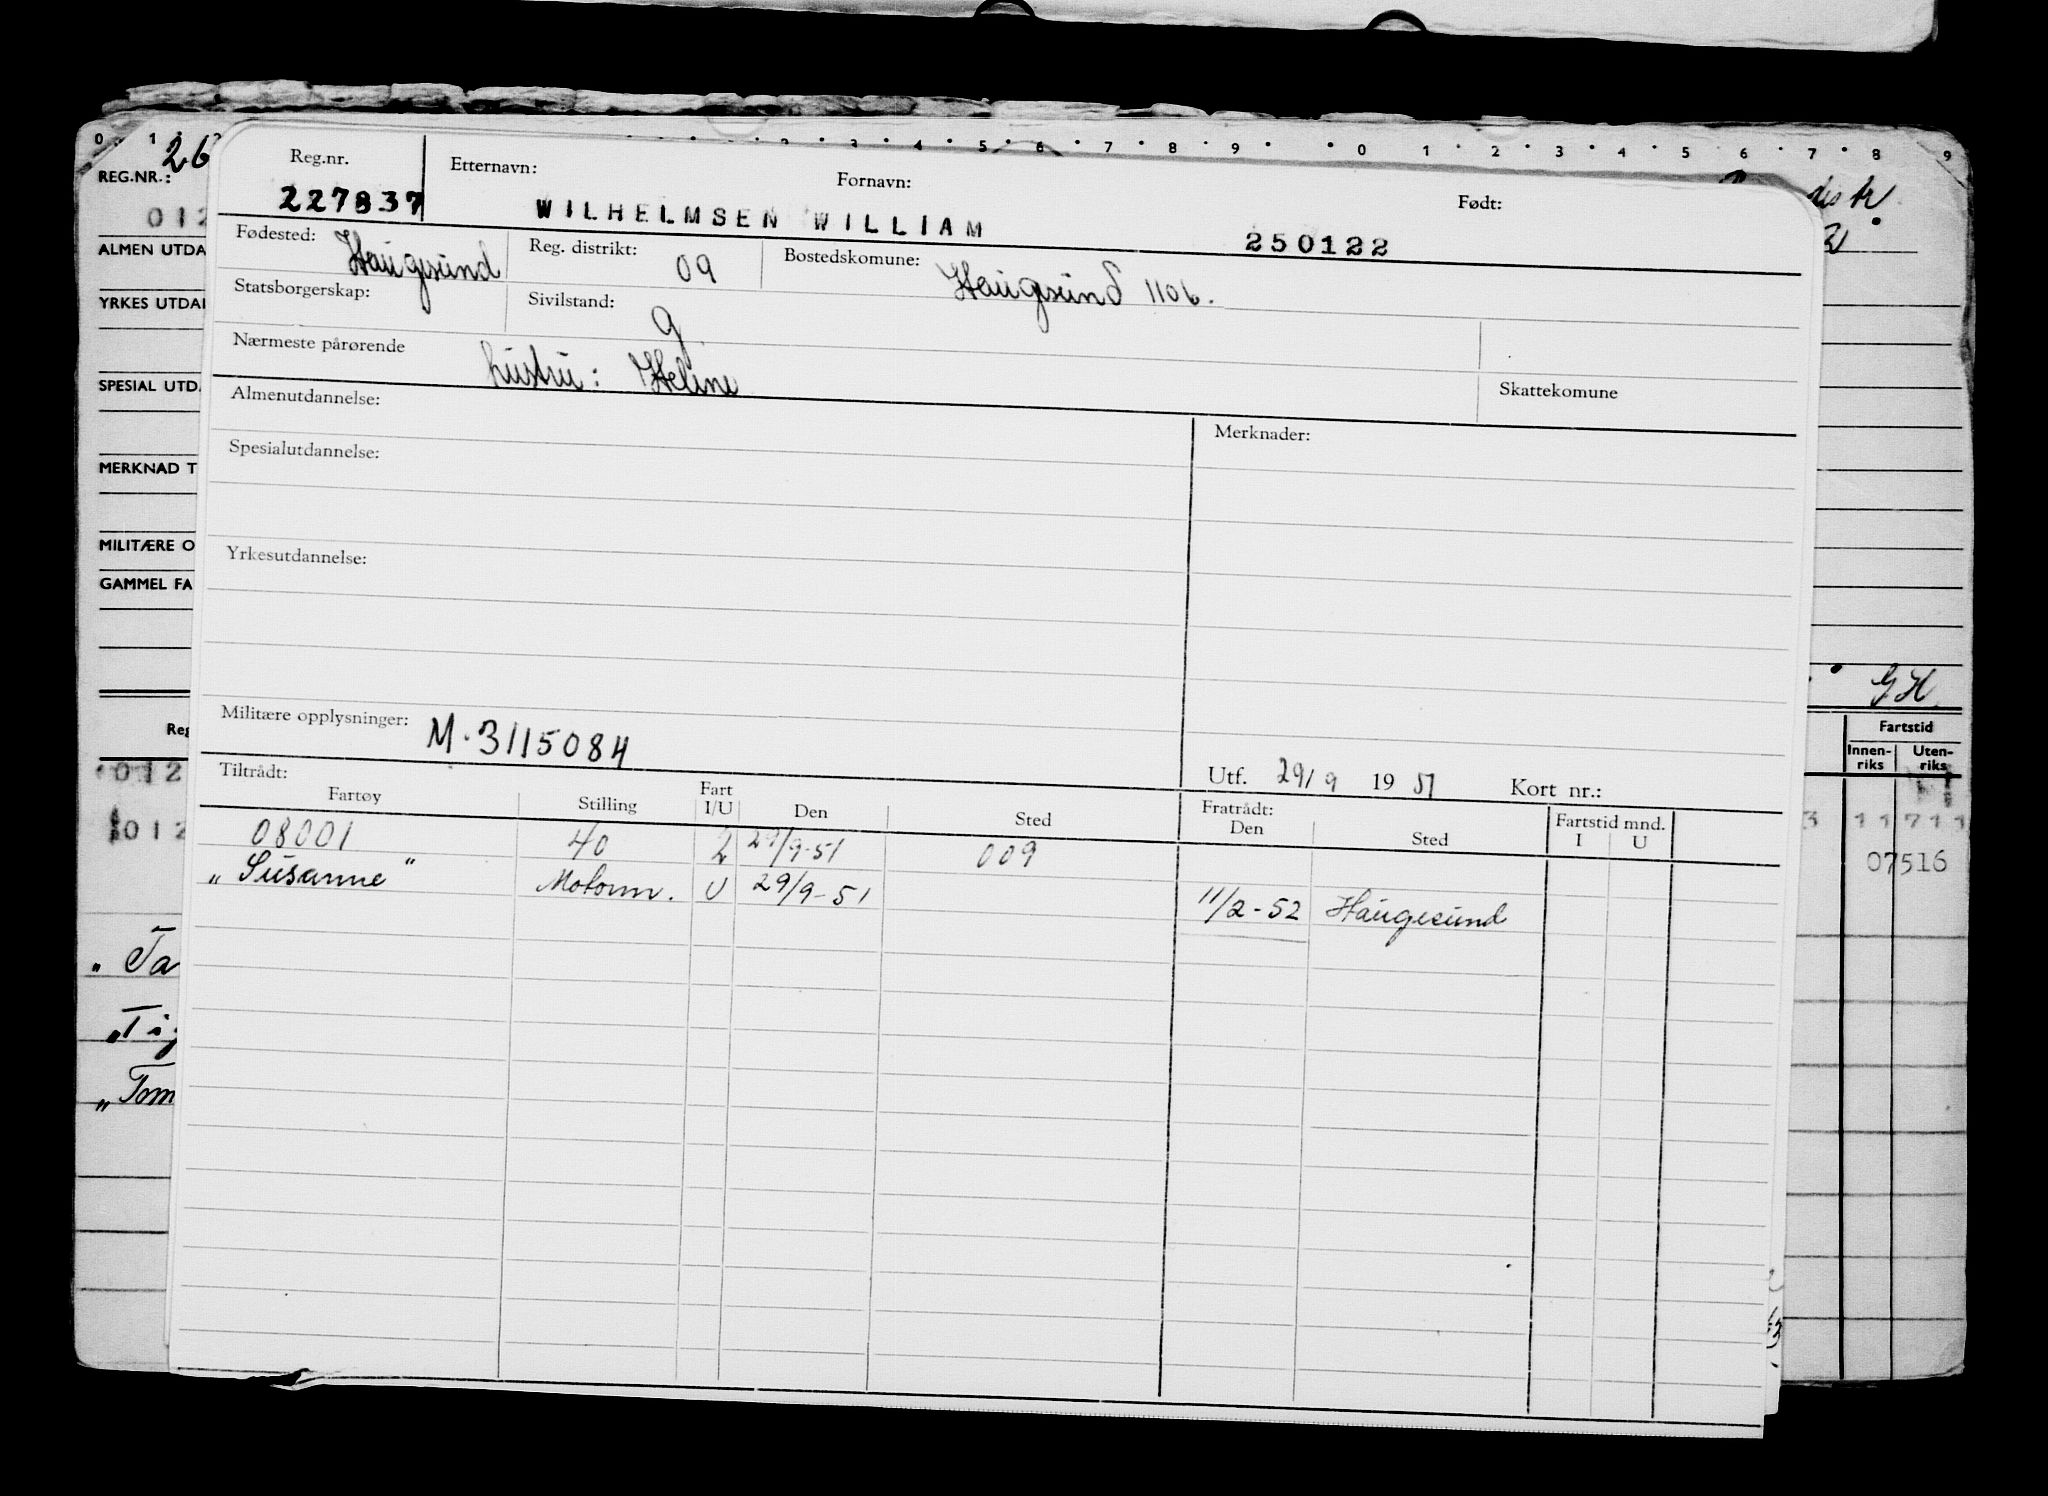 0 1 2 3 4 5 6 7 8 9 0 1 2 3 4 5 6 7 8 9
26
REG.NR.:
012
ALMEN UTDA
YRKES UTDA
SPESIAL UTD
MERKNAD T
MILITÆRE O
GAMMEL FA
Reg
012
012
„Ta
„Tig
„Tom
Reg.nr. Etternavn: Fornavn: Født:
227837 WILHELMSEN WILLIAM 250122
Fødested: Haugesund Reg. distrikt: 09 Bostedskomune: Haugesund 1106.
Statsborgerskap: Sivilstand: g
Nærmeste pårørende hustru: Heline
Skattekomune
Almenutdannelse: Merknader:
Spesialutdannelse:
Yrkesutdannelse:
Militære opplysninger: M.3115084
Tiltrådt: Utf. 29/9 1951 Kort nr.:
Fartøy Stilling Fart I/U Den Sted Fratrådt: Den Sted Fartstid mnd. I U
08001 40 2 29/9-51 009
„Susanne" Motorm. U 29/9-51 11/2-52 Haugesund
GH
Fartstid
Innen-riks Uten-riks
3 11711
07516